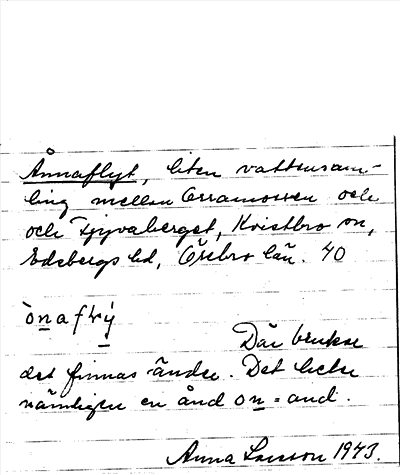 Ånnaflyt, liten vattensam-
ling mellan Orramossen och
och Tjyvaberget, Kvistbro sn,
Edsbergs hd, Örebro län. 40
ònafɬý
Där brukar
det finnas änder. Det heter
nämligen en ånd on = and.
Anna Larsson 1943.